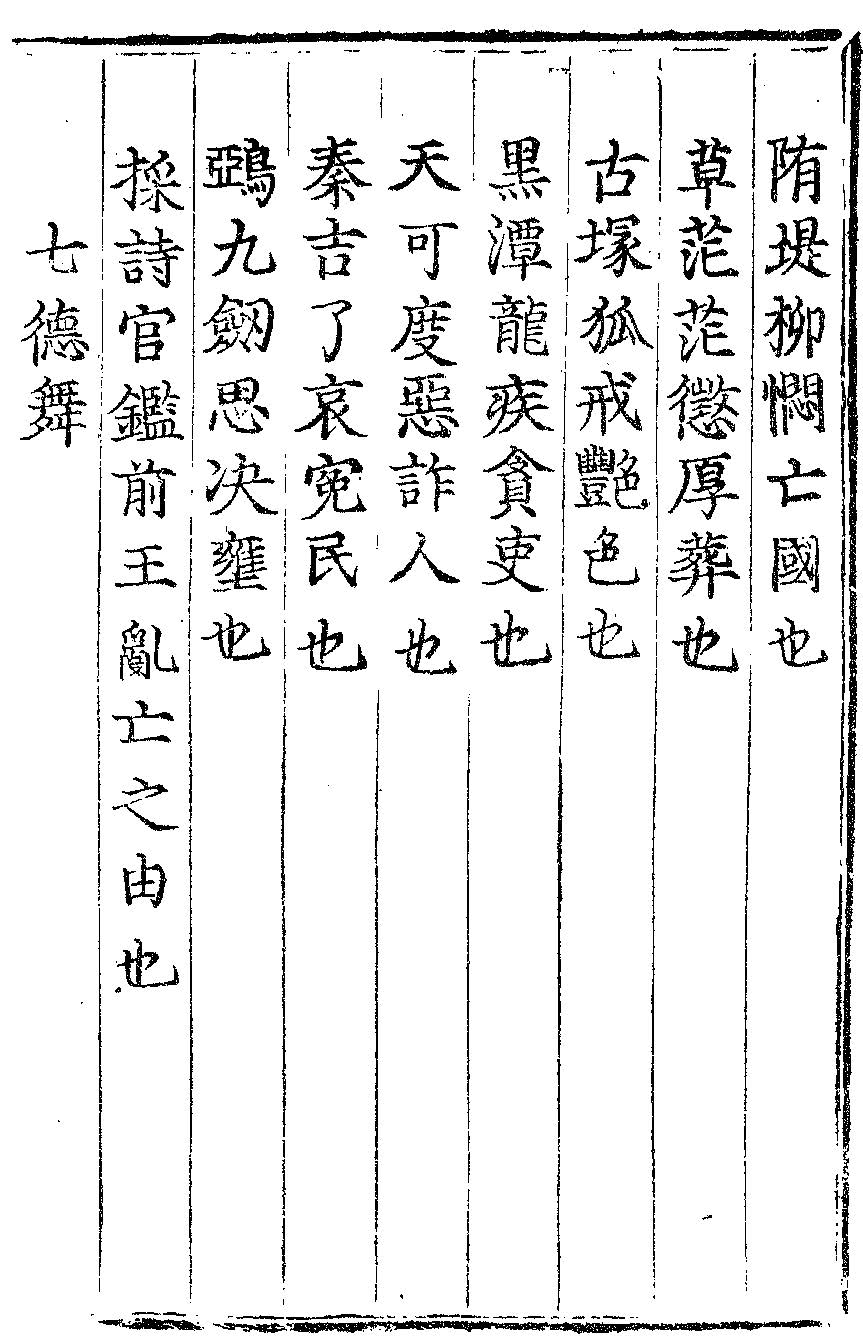 陏堤柳憫亡國也
草茫茫懲厚葬也
古塚狐戒艷色也
黒潭龍疾貪吏也
天可度惡詐人也
秦吉了哀寃民也
鵶九劒思决壅也
採詩官鑑前王亂亡之由也
七德舞